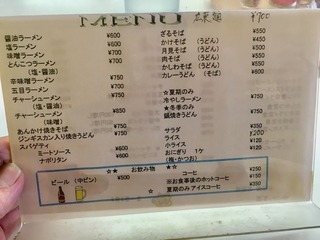 MENU
広東麺 ¥700
醤油ラーメン ¥600
塩ラーメン ¥600
味噌ラーメン ¥700
とんこつラーメン ¥700
(塩・醤油)
辛味噌ラーメン ¥750
五目ラーメン ¥700
チャーシューメン ¥750
(塩・醤油)
チャーシューメン ¥850
(味噌)
あんかけ焼きそば ¥750
ジンギスカン入り焼きうどん ¥750
スパゲティ
ミートソース ¥600
ナポリタン ¥600
ざるそば ¥550
かけそば (うどん) ¥450
月見そば (うどん) ¥500
肉そば (うどん)
かしわそば (うどん)
カレーうどん (そば)
☆夏期のみ
冷やしラーメン ¥750
★冬季のみ
鍋焼きうどん ¥750
サラダ ¥350
ライス ¥200
小ライス ¥120
おにぎり 1ケ ¥120
(梅・かつお)
☆★ お飲み物 ★☆
ビール (中ビン) ¥500
コーヒー ¥250
※お食事後のホットコーヒー ¥150
夏期のみ アイスコーヒー ¥350